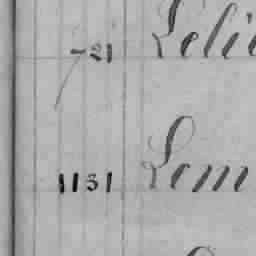 721 Léli
1131 Lem